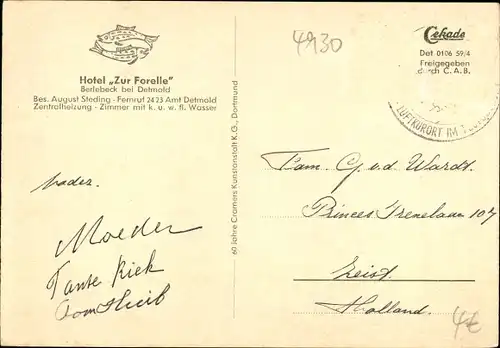 4930
Cekade
Det 0106 59/4
Freigegeben
durch C.A.B.
Hotel „Zur Forelle"
Berlebeck bei Detmold
Bes. August Steding - Fernruf 2423 Amt Detmold
Zentralheizung - Zimmer mit k. u. w. fl. Wasser
LUFTKURORT IM
60 Jahre Cramers Kunstanstalt K.G., Dortmund
Vader.
Moeder
Tante Riek
Oom
Fam. G. v. d. Wardt.
Prinses Irenelaan 107
Zeist.
Holland.
4€